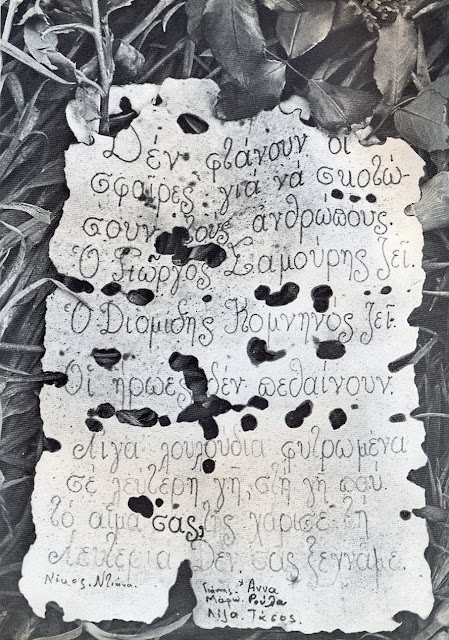 Δέν φτάνουν οἱ
σφαῖρες γιά νά σκοτώ-
σουν τούς ἀνθρώπους.
Ὁ Γιῶργος Σαμούρης Ζεῖ.
Ὁ Διομίδης Κομνηνός Ζεῖ.
Οἱ ἥρωες δέν πεθαίνουν.
Λίγα λουλούδια φυτρωμένα
σέ λεύτερη γῆ, στή γῆ πού
τό αἷμα σας, της χάρισε τή
Λευτεριά Δεν σας ξεχνᾶμε.
Νίκος. Ντιάνα.
Γιάννης. Άννα
Μάρω. Ρούλα
Λίλα. Τάσος.